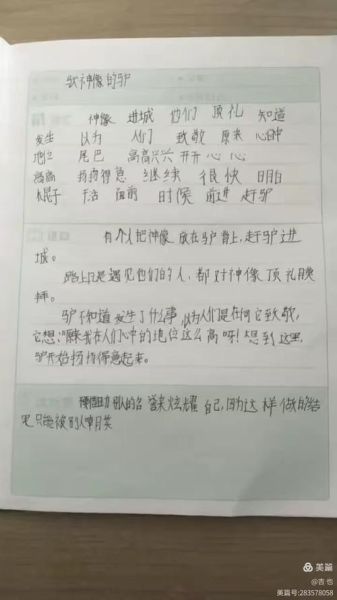 驮神像的驴
神像 进城 他们 顶礼 知道
发生 以为 人们 致敬 原来 心中
地位 尾巴 高高兴兴 开开心心
高高 扬扬得意 继续 很快 明白
木棍子 干活 面前 时候 前进 赶驴
有个人把神像放在驴背上,赶驴进
城。
路上凡是遇见他们的人,都对神像顶礼膜
拜。
驴不知道发生了什么事,以为人们是在向它致敬,
它想:原来我在人们心中的地位这么高呀!想到这里,
驴开始扬扬得意起来。
借助别人的名誉来炫耀自己,因为这样做的结
果只能被别人嘲笑
美篇
@杏也
美篇号:283578058